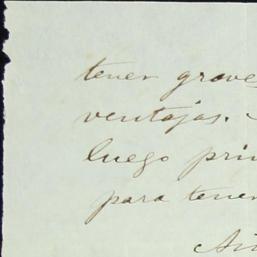 tener grave
ventajas.
luego prin
para tener